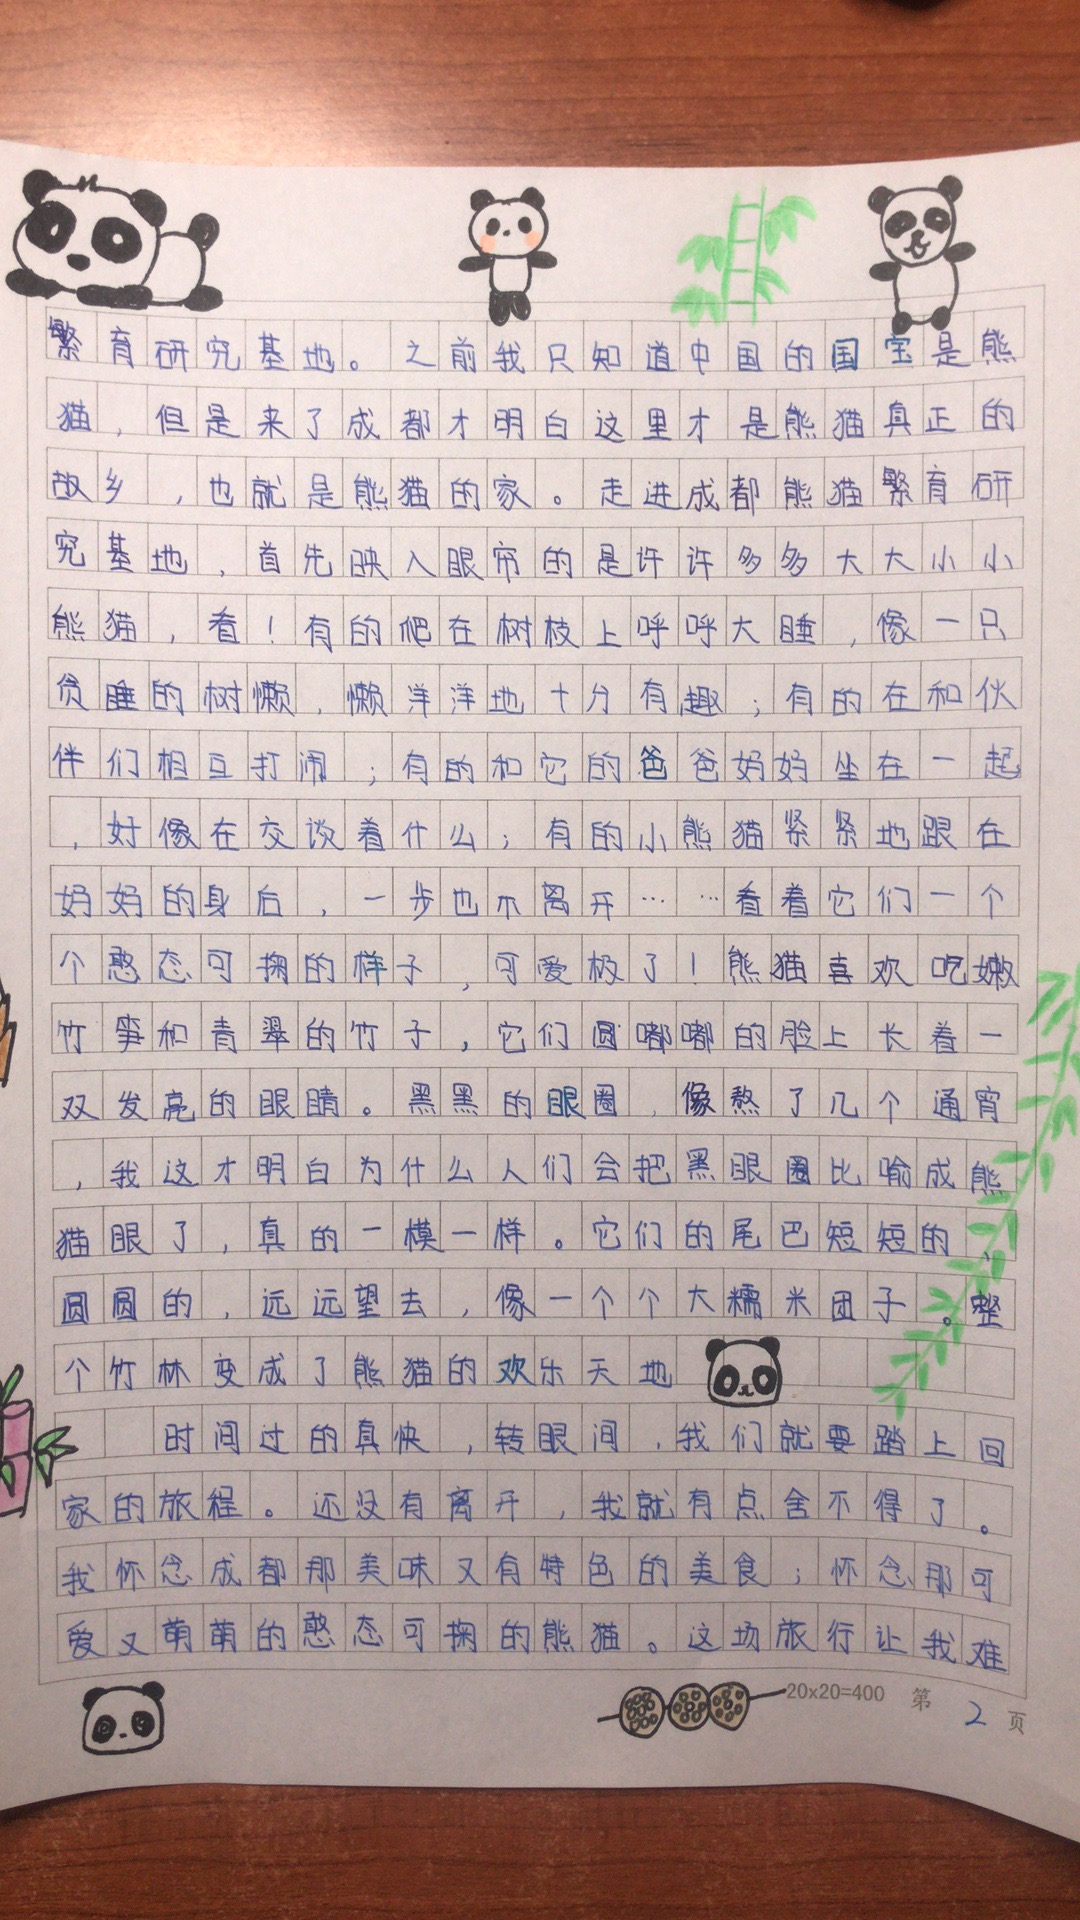 繁育研究基地。之前我只知道中国的国宝是熊
猫，但是来了成都才明白这里才是熊猫真正的
故乡，也就是熊猫的家。走进成都熊猫繁育研
究基地，首先映入眼帘的是许许多多大大小小
熊猫，看！有的爬在树枝上呼呼大睡，像一只
贪睡的树懒，懒洋洋地十分有趣；有的在和伙
伴们相互打闹；有的和它的爸爸妈妈坐在一起
，好像在交谈着什么；有的小熊猫紧紧地跟在
妈妈的身后，一步也不离开……看着它们一个
个憨态可掬的样子，可爱极了！熊猫喜欢吃嫩
竹笋和青翠的竹子，它们圆嘟嘟的脸上长着一
双发亮的眼睛。黑黑的眼圈，像熬了几个通宵
，我这才明白为什么人们会把黑眼圈比喻成熊
猫眼了，真的一模一样。它们的尾巴短短的、
圆圆的，远远望去，像一个个大糯米团子。整
个竹林变成了熊猫的欢乐天地
时间过的真快，转眼间，我们就要踏上回
家的旅程。还没有离开，我就有点舍不得了。
我怀念成都那美味又有特色的美食；怀念那可
爱又萌萌的憨态可掬的熊猫。这场旅行让我难
20x20=400 第2页